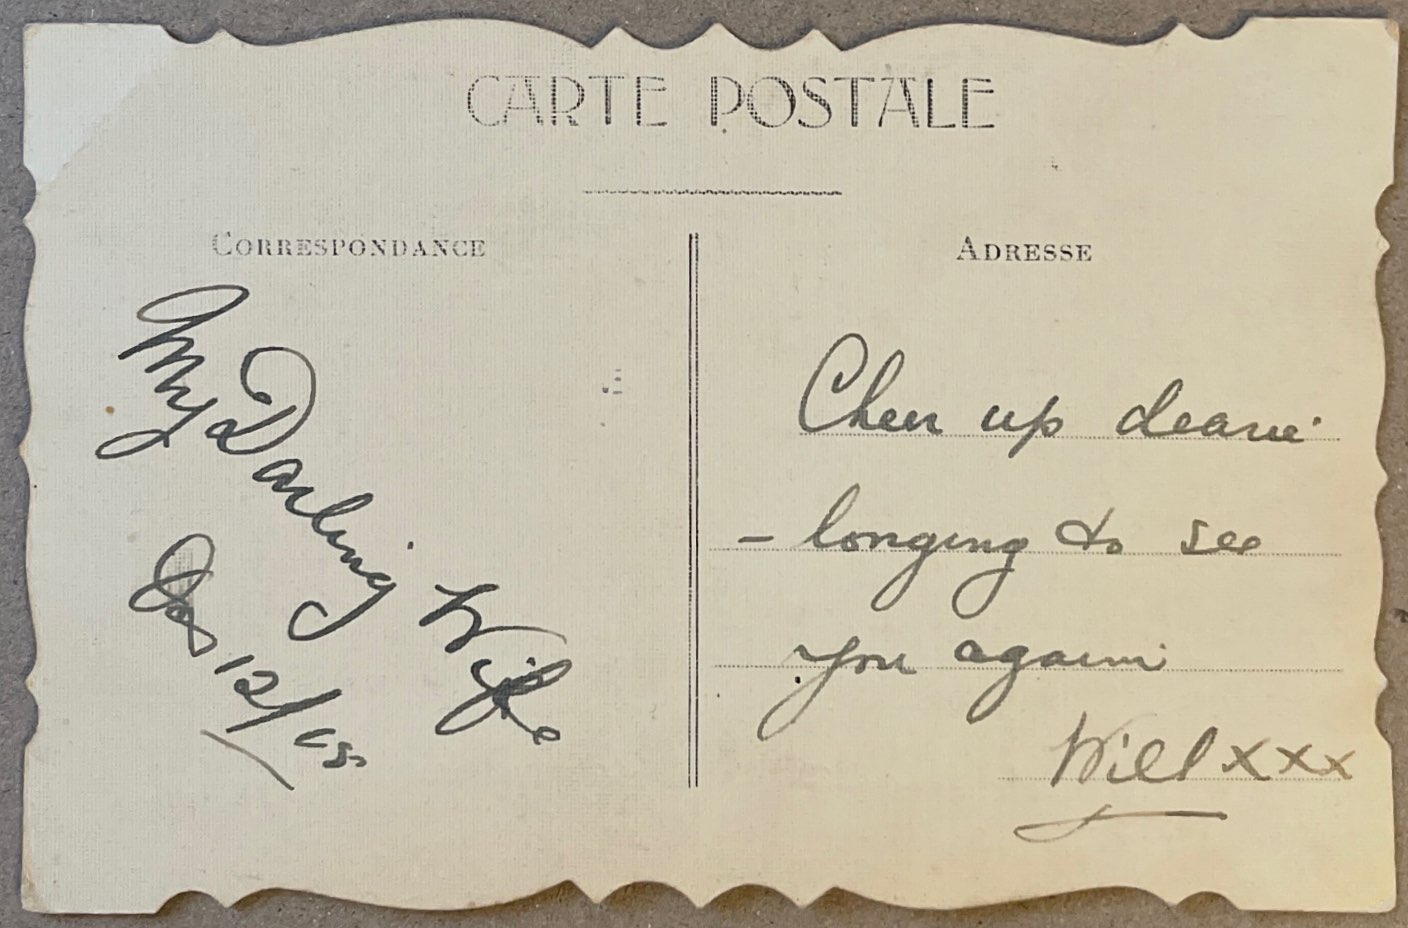 CARTE POSTALE
CORRESPONDANCE
My Darling Wife
12/
ADRESSE
Cheer up dearie
– longing to see
you again
Will xxx